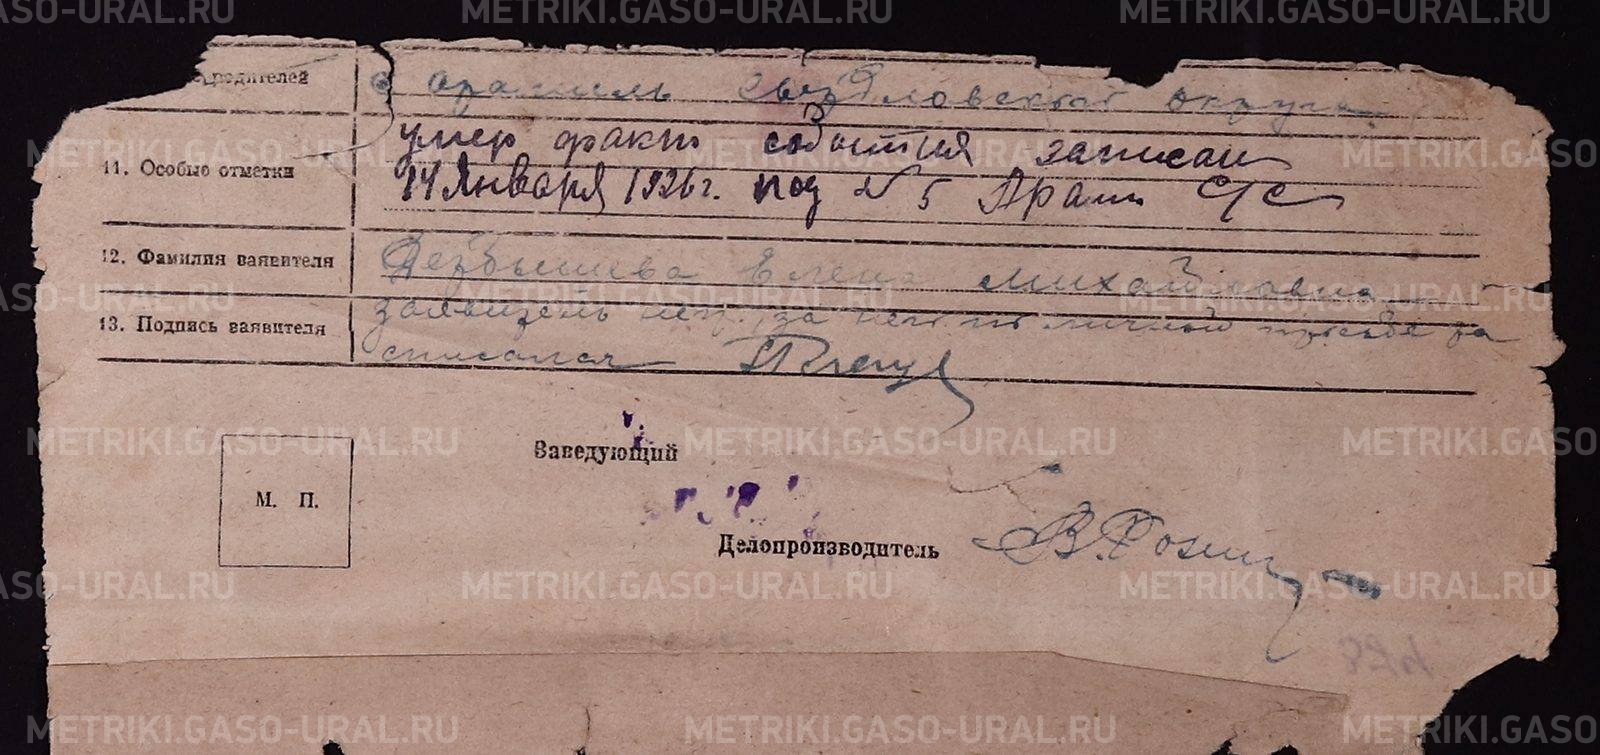 METRIKI.GASO-URAL.RU METRIKI.GASO-URAL.RU
родителей с Арамиль Свердловского округа
11. Особые отметки умер факт события записан
14 Января 1926 г. под № 5 Арам с/с
12. Фамилия заявителя Дербышева Елена Михайловна
13. Подпись заявителя заявитель нег. за нее по личной просьбе ра
списался
Заведующий
М. П.
Делопроизводитель
METRIKI.GASO-URAL.RU METRIKI.GASO-URAL.RU METRIKI.GASO